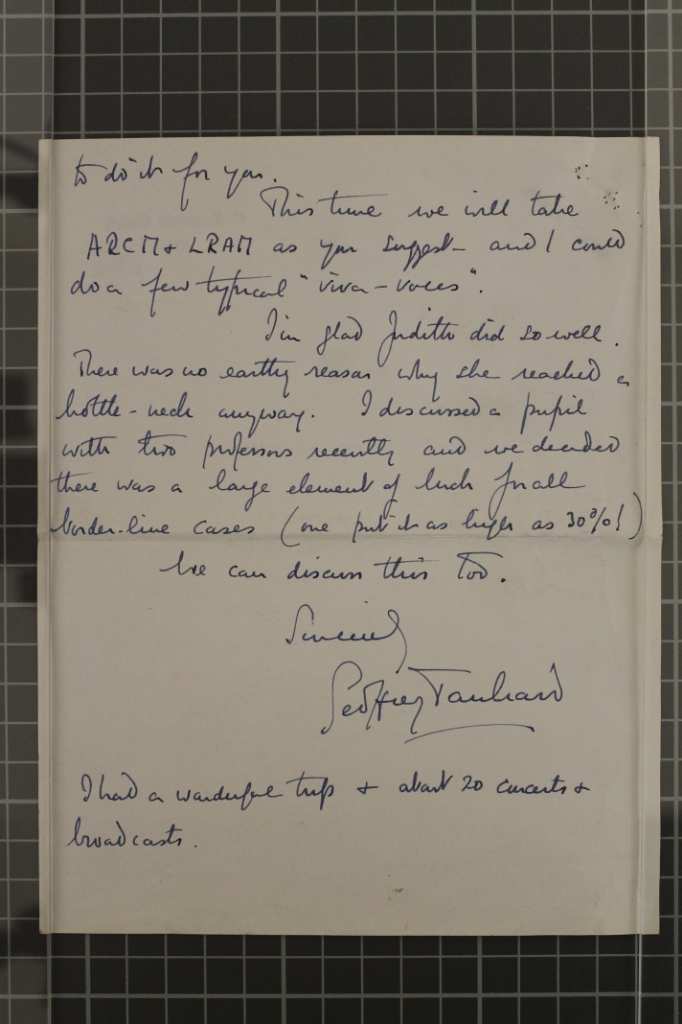 to do it for you.
This time we will take
ARCM & LRAM as you suggest - and I could
do a few typical "viva-voces".
I'm glad Judith did so well.
There was no earthly reason why she reached a
bottle-neck anyway. I discussed a pupil
with two professors recently and we decided
there was a large element of luck for all
border-line cases (one put it as high as 30%!)
We can discuss this too.
Sincerely
Geoffrey Tankard
I had a wonderful trip & about 20 concerts &
broadcasts.